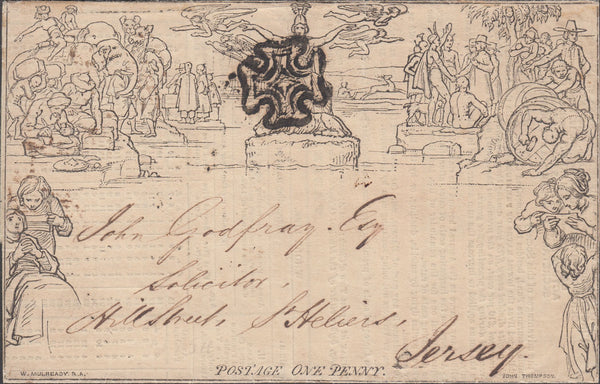 John Godfray Esq
Solicitor,
Hill Street, St Heliers,
Jersey.
POSTAGE ONE PENNY.
W. MULREADY R.A.
JOHN THOMPSON